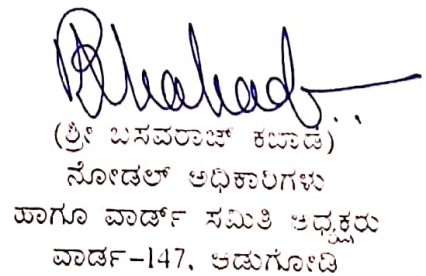 (ಶ್ರೀ ಬಸವರಾಜ್ ಕಬಾಡೆ)
ನೋಡಲ್ ಅಧಿಕಾರಿಗಳು
ಹಾಗೂ ವಾರ್ಡ್ ಸಮಿತಿ ಅಧ್ಯಕ್ಷರು
ವಾರ್ಡ-147, ಆಡುಗೋಡಿ